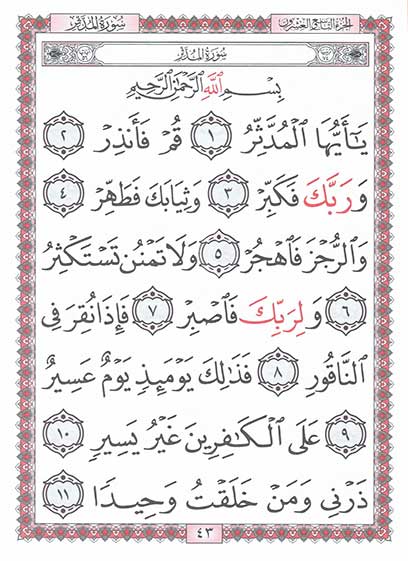 الجزء التاسع والعشرون سورة المدثر
سورة المدثر
بِسْمِ اللَّهِ الرَّحْمَٰنِ الرَّحِيمِ
يَٰٓأَيُّهَا ٱلْمُدَّثِّرُ ١ قُمْ فَأَنذِرْ ٢
وَرَبَّكَ فَكَبِّرْ ٣ وَثِيَابَكَ فَطَهِّرْ ٤
وَٱلرُّجْزَ فَٱهْجُرْ ٥ وَلَا تَمْنُن تَسْتَكْثِرُ
٦ وَلِرَبِّكَ فَٱصْبِرْ ٧ فَإِذَا نُقِرَ فِى
ٱلنَّاقُورِ ٨ فَذَٰلِكَ يَوْمَئِذٍ يَوْمٌ عَسِيرٌ
٩ عَلَى ٱلْكَٰفِرِينَ غَيْرُ يَسِيرٍ ١٠
ذَرْنِى وَمَنْ خَلَقْتُ وَحِيدًا ١١
٤٣